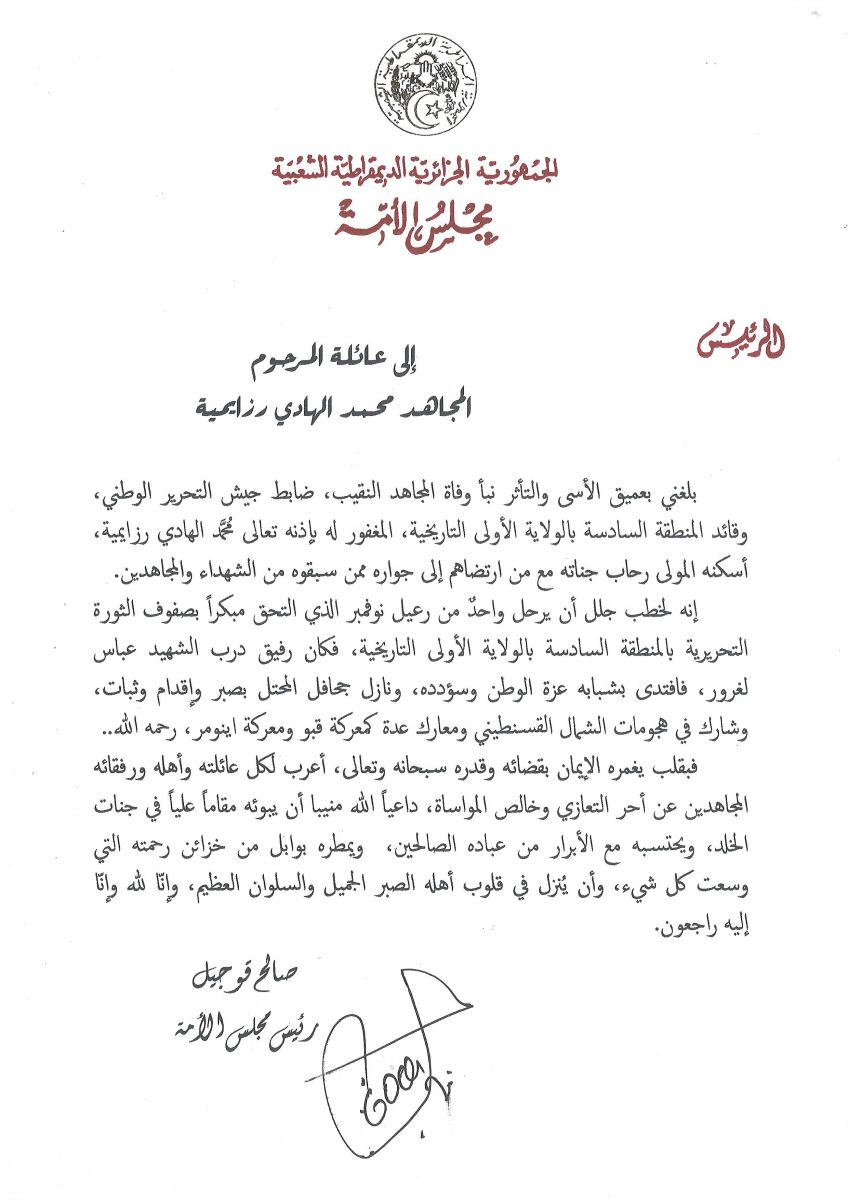 الجمهوريّة الجزائريّة الديمقراطيّة الشعبيّة
مجلس الأمّة
الرئيس
إلى عائلة المرحوم
المجاهد محمد الهادي رزايمية
بلغني بعميق الأسى والتأثر نبأ وفاة المجاهد النقيب، ضابط جيش التحرير الوطني،
وقائد المنطقة السادسة بالولاية الأولى التاريخية، المغفور له بإذنه تعالى مُحَمَّد الهادي رزايمية،
أسكنه المولى رحاب جناته مع من ارتضاهم إلى جواره ممن سبقوه من الشهداء والمجاهدين.
إنه لخطب جلل أن يرحل واحدٌ من رعيل نوفمبر الذي التحق مبكراً بصفوف الثورة
التحريرية بالمنطقة السادسة بالولاية الأولى التاريخية، فكان رفيق درب الشهيد عباس
لغرور، فافتدى بشبابه عزة الوطن وسؤدده، ونازل جحافل المحتل بصبر وإقدام وثبات،
وشارك في هجومات الشمال القسنطيني ومعارك عدة كمعركة قبو ومعركة اينومر، رحمه الله..
فبقلب يغمره الإيمان بقضائه وقدره سبحانه وتعالى، أعرب لكل عائلته وأهله ورفقائه
المجاهدين عن أحر التعازي وخالص المواساة، داعياً الله منيبا أن يبوئه مقاماً علياً في جنات
الخلد، ويحتسبه مع الأبرار من عباده الصالحين، ويمطره بوابل من خزائن رحمته التي
وسعت كل شيء، وأن يُنزل في قلوب أهله الصبر الجميل والسلوان العظيم، وإنّا لله وإنّا
إليه راجعون.
صالح قوجيل
رئيس مجلس الأمة